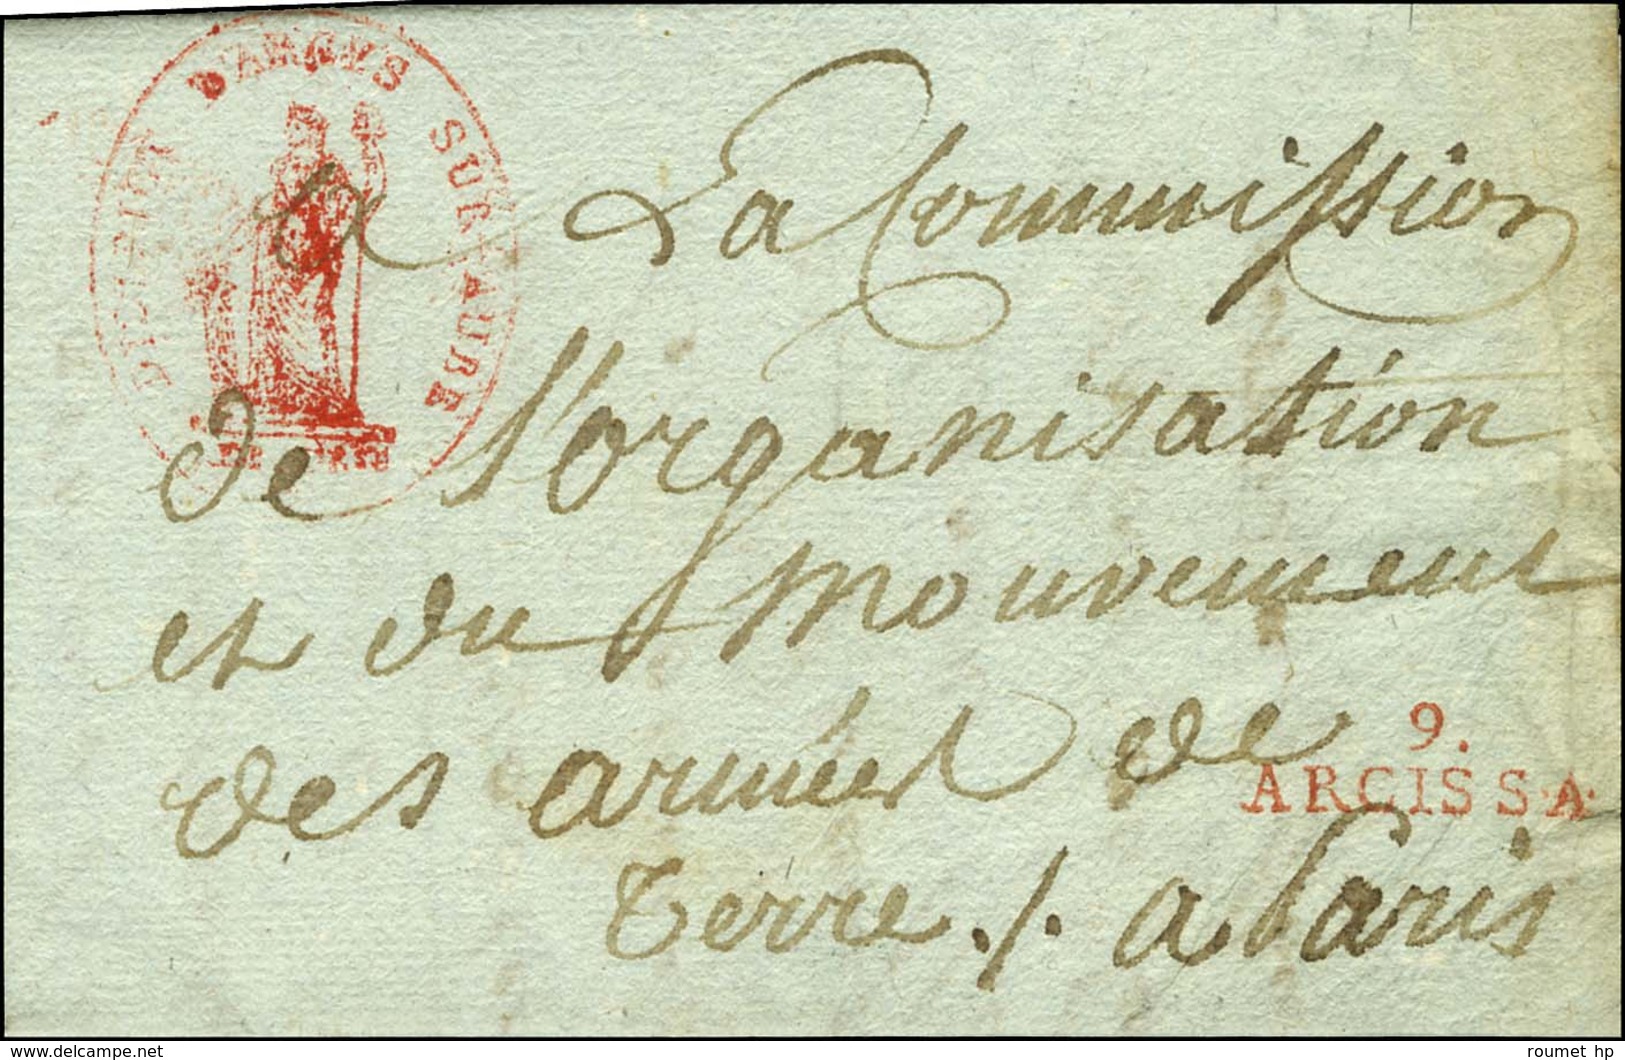 D'ARCYS SUR AUBE
a La Commission
de l'organisation
et du mouvement
des armées de
9.
ARCIS S.A.
terre ./. a Paris
www.delcampe.net
roumet hp